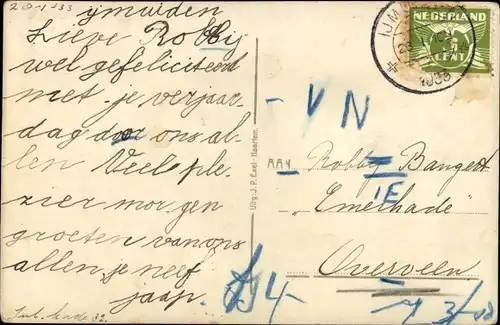 20-1-'33
ymuiden
Lieve Robbij
wel gefeliciteerd
met je verjaar-
dag door ons al-
len Veel ple-
zier morgen
groeten van ons
allen, je neef
jaap.
Uitg. J. P. Exel - Haarlem.
IJM
NEDERLAND
CENT
1933
- V N
AAN
Robby Bangert
IE
"Emelhade"
Overveen